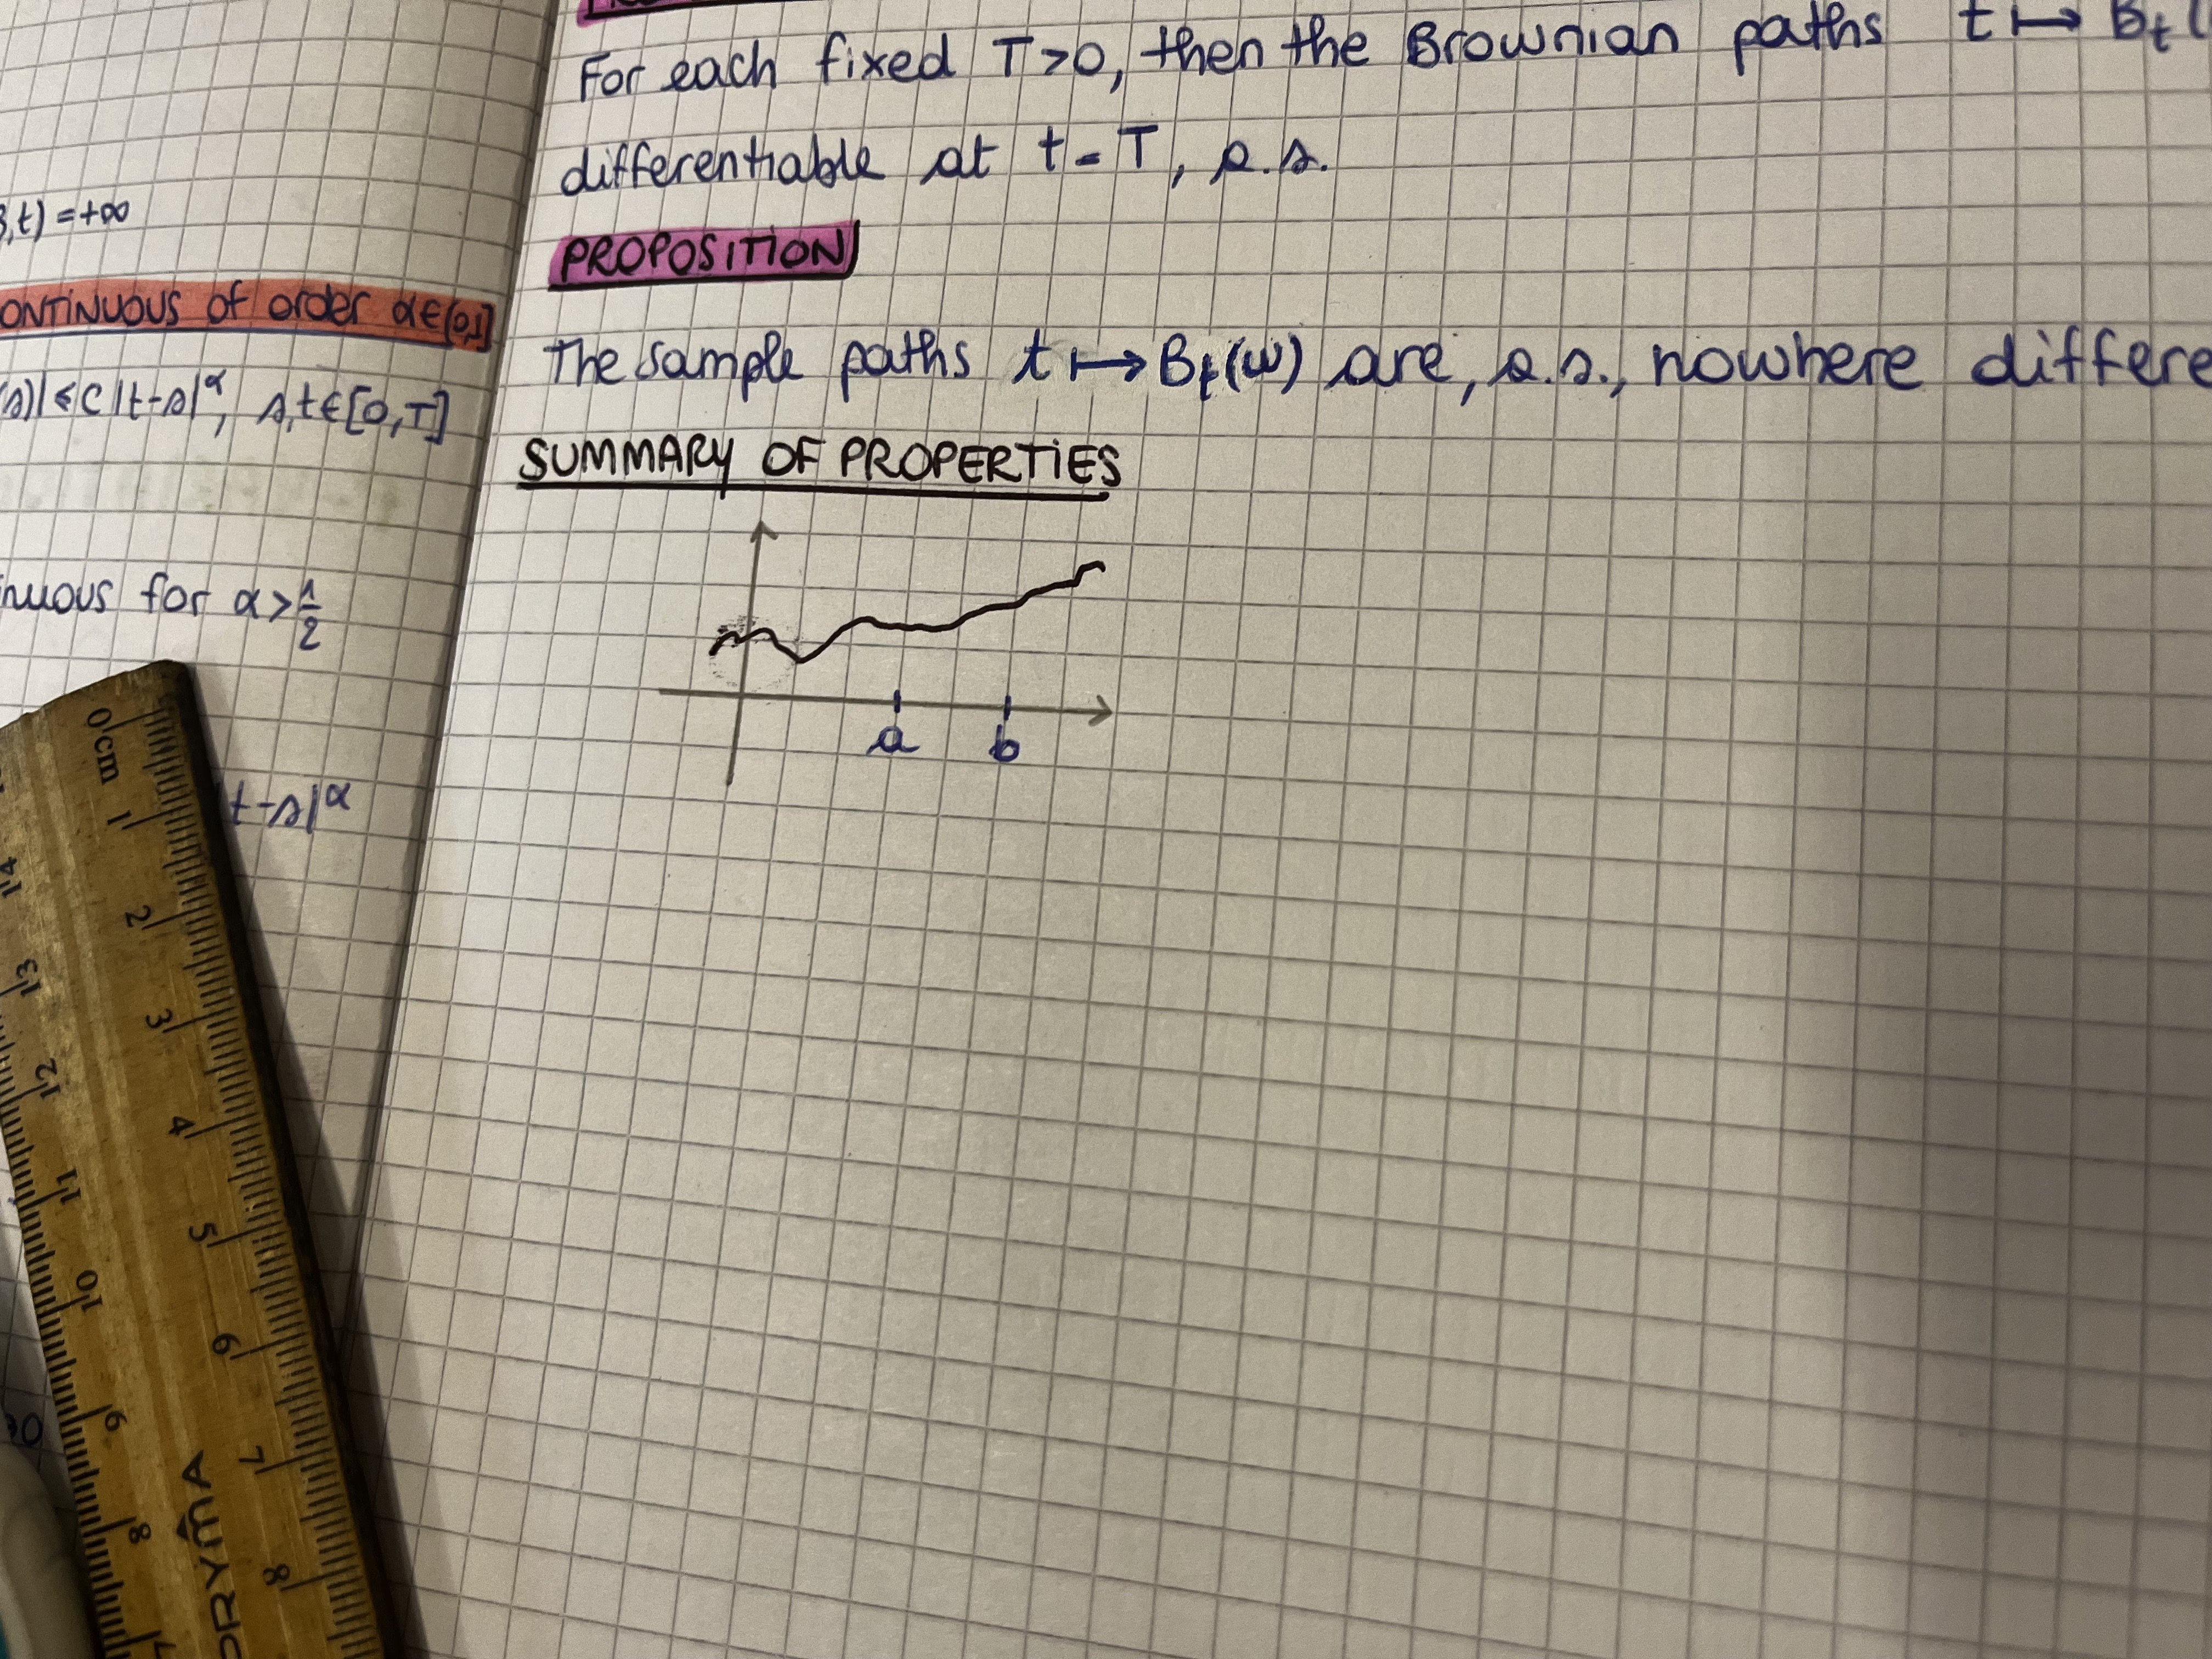 ,t) = +∞
ONTINUOUS of order α∈(0,1]
(s)| ≤ C |t-s|^α, s,t ∈ [0,T]
nuous for α > 1/2
|t-s|^α
For each fixed T>0, then the Brownian paths t ↦ B_t(
differentiable at t = T, a.s.
PROPOSITION
The sample paths t ↦ B_t(ω) are, a.s., nowhere differe
SUMMARY OF PROPERTIES
a b
0 cm 1 2 3 4 5 6 7 8
14 13 12 11 10 9 8 7